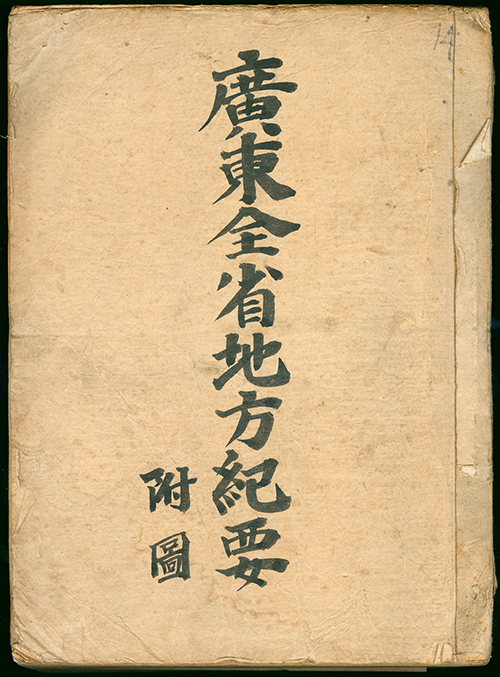 廣東全省地方紀要
附圖